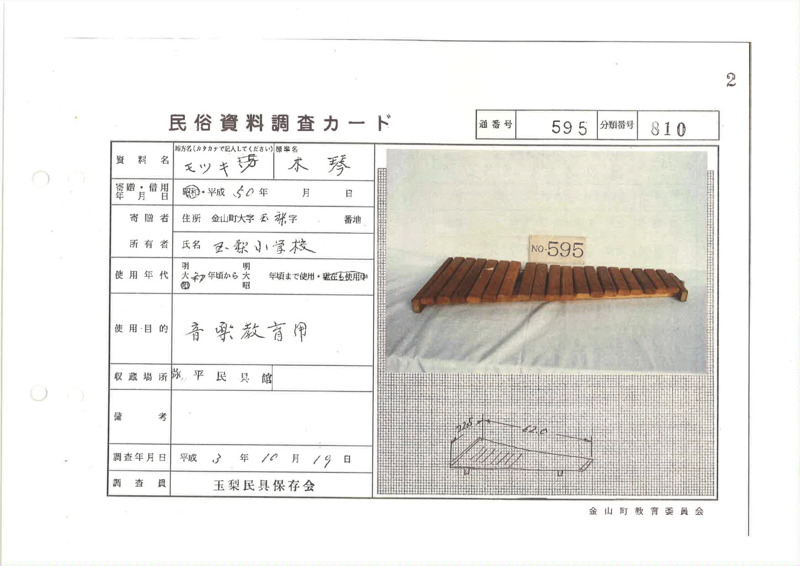 2
民俗資料調査カード
通番号 595 分類番号 810
資料名
地方名(カタカナで記入してください) 標準名
モツキ 木琴
寄贈・借用年月日
昭和・平成 50年 月 日
寄贈者
住所 金山町大字玉梨字 番地
所有者
氏名 玉梨小学校
使用年代
明大昭 年頃から 明大昭 年頃まで使用・現在も使用中
使用目的
音楽教育用
収蔵場所
弥平民具館
備考
調査年月日
平成 3 年 10 月 19 日
調査員
玉梨民具保存会
NO. 595
22.5
62.0
金山町教育委員会